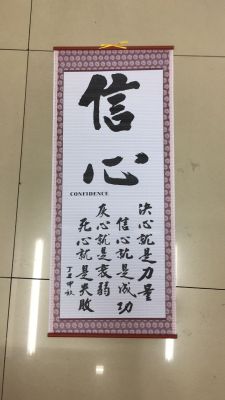 信心
CONFIDENCE
决心就是力量
信心就是成功
灰心就是衰弱
死心就是失败